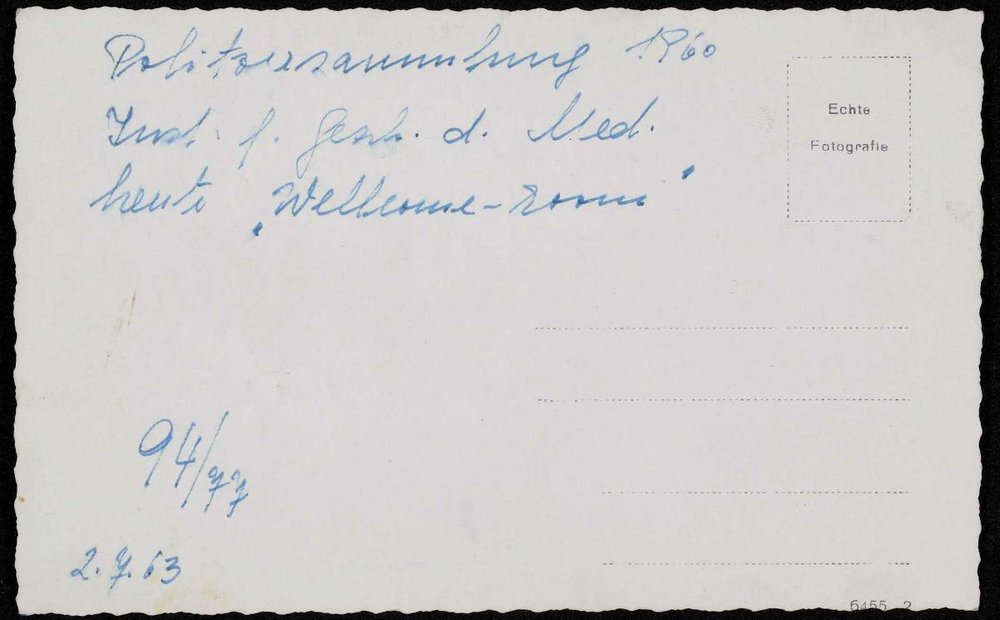 Politzersammlung 1960
Inst. f. Gesch. d. Med.
heute „Wellcome-room“
Echte
Fotografie
94/77
2.7.63
6455 2